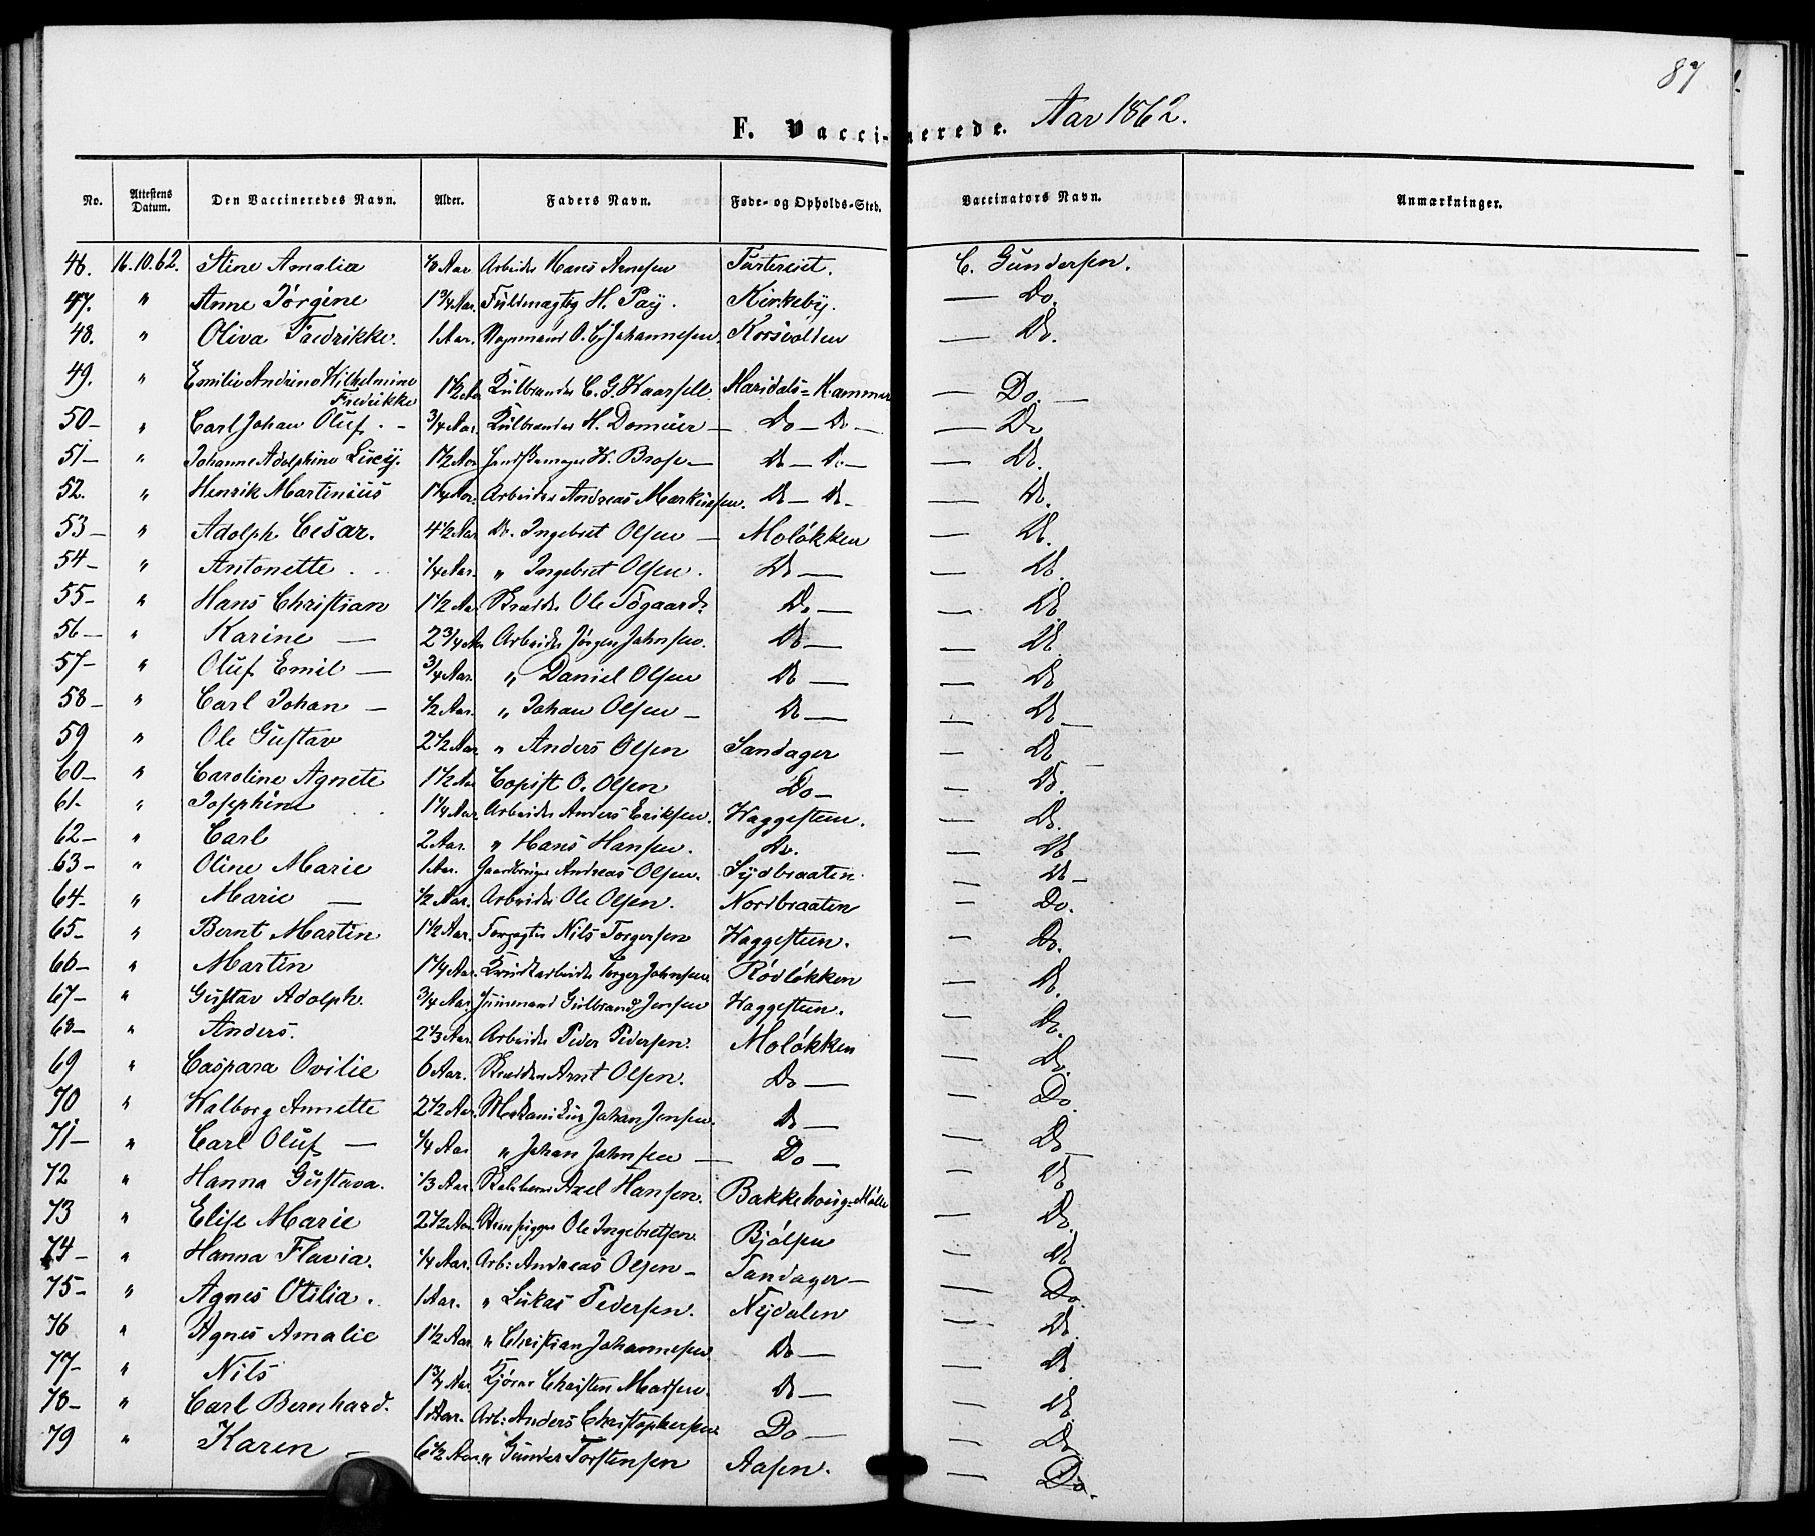 87
F. Vaccinerede. Aar 1862.
No. Attestens Datum. Den Vaccineredes Navn. Alder. Faders Navn. Føde- og Opholds-Sted. Vaccinators Navn. Anmærkninger.
46. 16.10.62. Stine Amalia Aar Arbeider Hans Arnesen C. Gundersen.
47. " Anne Jørgine 1 3/4 Aar. Fuldmægtig H. Pay. Kirkeby. — Do.
48. " Oliva Fredrikke. 1 Aar. O. Johannesen. Korsvolden — Do.
49. " Emilie Andrine Wilhelmine Fredrikke 1 1/2 Aar C. G. Maridals=Hammer — Do. —
50 — " Carl Johan Oluf. - 3/4 Aar. H. — Do — Do — — Do
51 — " Johanne Adolphine Lucy. 1 1/2 Aar — Do — Do — — Do.
52. " Henrik Martinius 1 1/4 Aar. Arbeider Andreas Markussen. Do — Do - — Do.
53 — " Adolph Cesar. 4 1/2 Aar Do. Ingebret Olsen — Moløkken — Do.
54 - " Antonette 1/4 Aar. " Ingebret Olsen. Do — — Do.
55 - " Hans Christian 1 1/2 Aar Ole Do — — Do.
56 — " Karine — 2 3/4 Aar Arbeider Jørgen Johnsen. Do — — Do.
57 - " Oluf Emil — 3/4 Aar. " Daniel Olsen Do — — Do
58 - " Carl Johan — 1/2 Aar. " Johan Olsen — Do — — Do —
59 " Ole Gustav 2 1/2 Aar " Anders Olsen Sandager — Do
60 - " Caroline Agnete 1 1/2 Aar Copist O. Olsen Do — — Do.
61. " Josephine 1 1/4 Aar. Arbeider Anders Eriksen. Haggesteen. — Do.
62 — " Carl 2 Aar. " Hans Hansen. Do. — Do
63 — " Oline Marie 1 Aar. Gaardbruger Andreas Olsen. Sydbraaten — Do —
64 - " Marie — 1/2 Aar. Arbeider Ole Olsen. Nordbraaten — Do.
65 - " Bernt Martin 1 1/2 Aar. Forpagter Nils Torgersen Haggesteen. — Do.
66 — " Martin 1 1/4 Aar. Torger Johnsen Rødløkken — Do.
67 - " Gustav Adolph. 3/4 Aar. Gulbrand Jensen Haggesteen. — Do.
68 — " Anders. 2 1/3 Aar. Arbeider Peder Pedersen. Moløkken — Do.
69 " Caspara Ovilie 6 Aar. Arnt Olsen. Do — — Do.
70 " Walborg Annette 2 1/2 Aar. Mekanikus Johan Jensen. Do — — Do
71 — " Carl Oluf — 1/4 Aar " Johan Johnsen — Do — — Do —
72 " Hanna Gustava. 1/3 Aar. Axel Hansen. Bakkehoug=Mølle — Do
73 " Elise Marie 2 1/2 Aar. Ole Ingebretsen. Bjølsen — Do.
74 — " Hanna Flavia. 1/4 Aar. Arb: Andreas Olsen — Sandager — — Do
75 - " Agnes Otilia. 1 Aar. " Lukas Pedersen. Nydalen — Do.
76 " Agnes Amalie 1 1/2 Aar " Christian Johannesen. Do — — Do.
77 - " Nils 1 3/4 Aar. Kjører Christen Madsen. Do — — Do.
78 - " Carl Bernhard. 1 Aar. Arb: Anders Christophersen Do — — Do.
79 " Karen — 6 1/2 Aar. " Gunder Torstensen Aasen. — Do.
— Do.